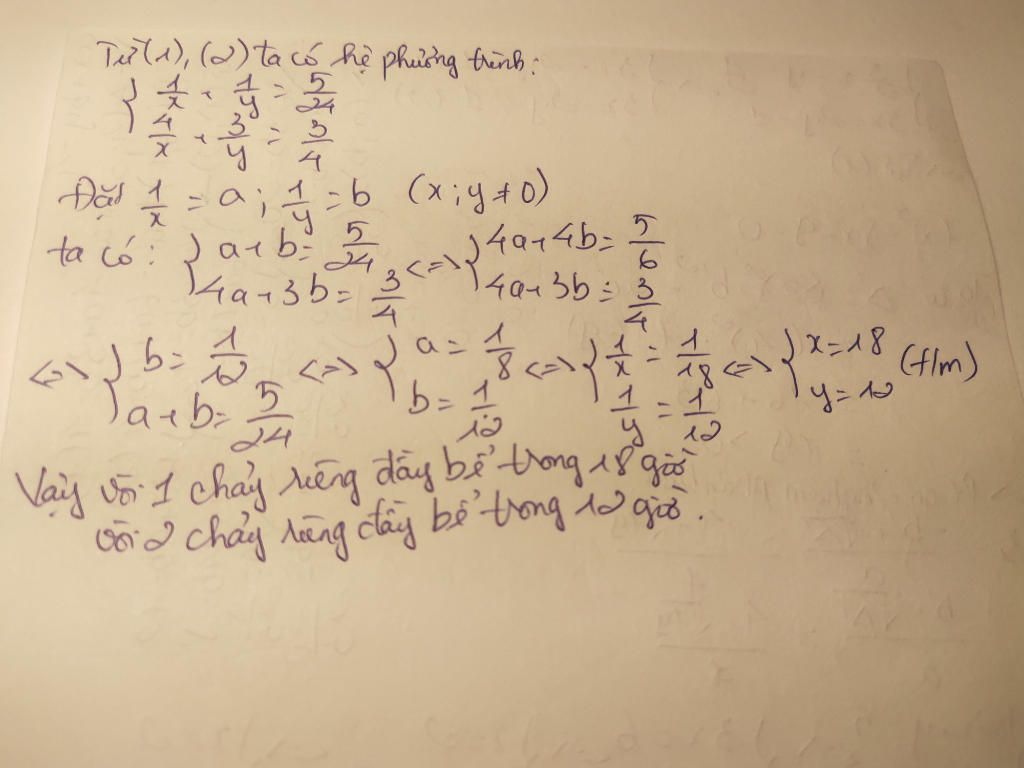 Từ (1), (2) ta có hệ phương trình:
{ 1/x + 1/y = 5/24
4/x + 3/y = 3/4
Đặt 1/x = a ; 1/y = b (x ; y ≠ 0)
ta có: { a + b = 5/24 <=> { 4a + 4b = 5/6
4a + 3b = 3/4 4a + 3b = 3/4
<=> { b = 1/12 <=> { a = 1/8 <=> { 1/x = 1/18 <=> { x = 18 (t/m)
a + b = 5/24 b = 1/12 1/y = 1/12 y = 12
Vậy vòi 1 chảy riêng đầy bể trong 18 giờ
vòi 2 chảy riêng đầy bể trong 12 giờ.